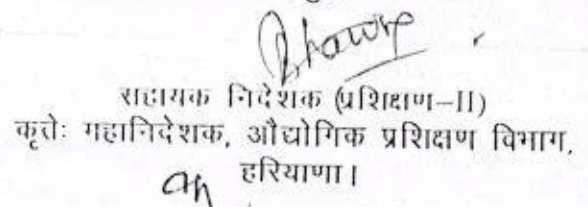 सहायक निदेशक (प्रशिक्षण-II)
कृतेः महानिदेशक, औद्योगिक प्रशिक्षण विभाग,
हरियाणा।